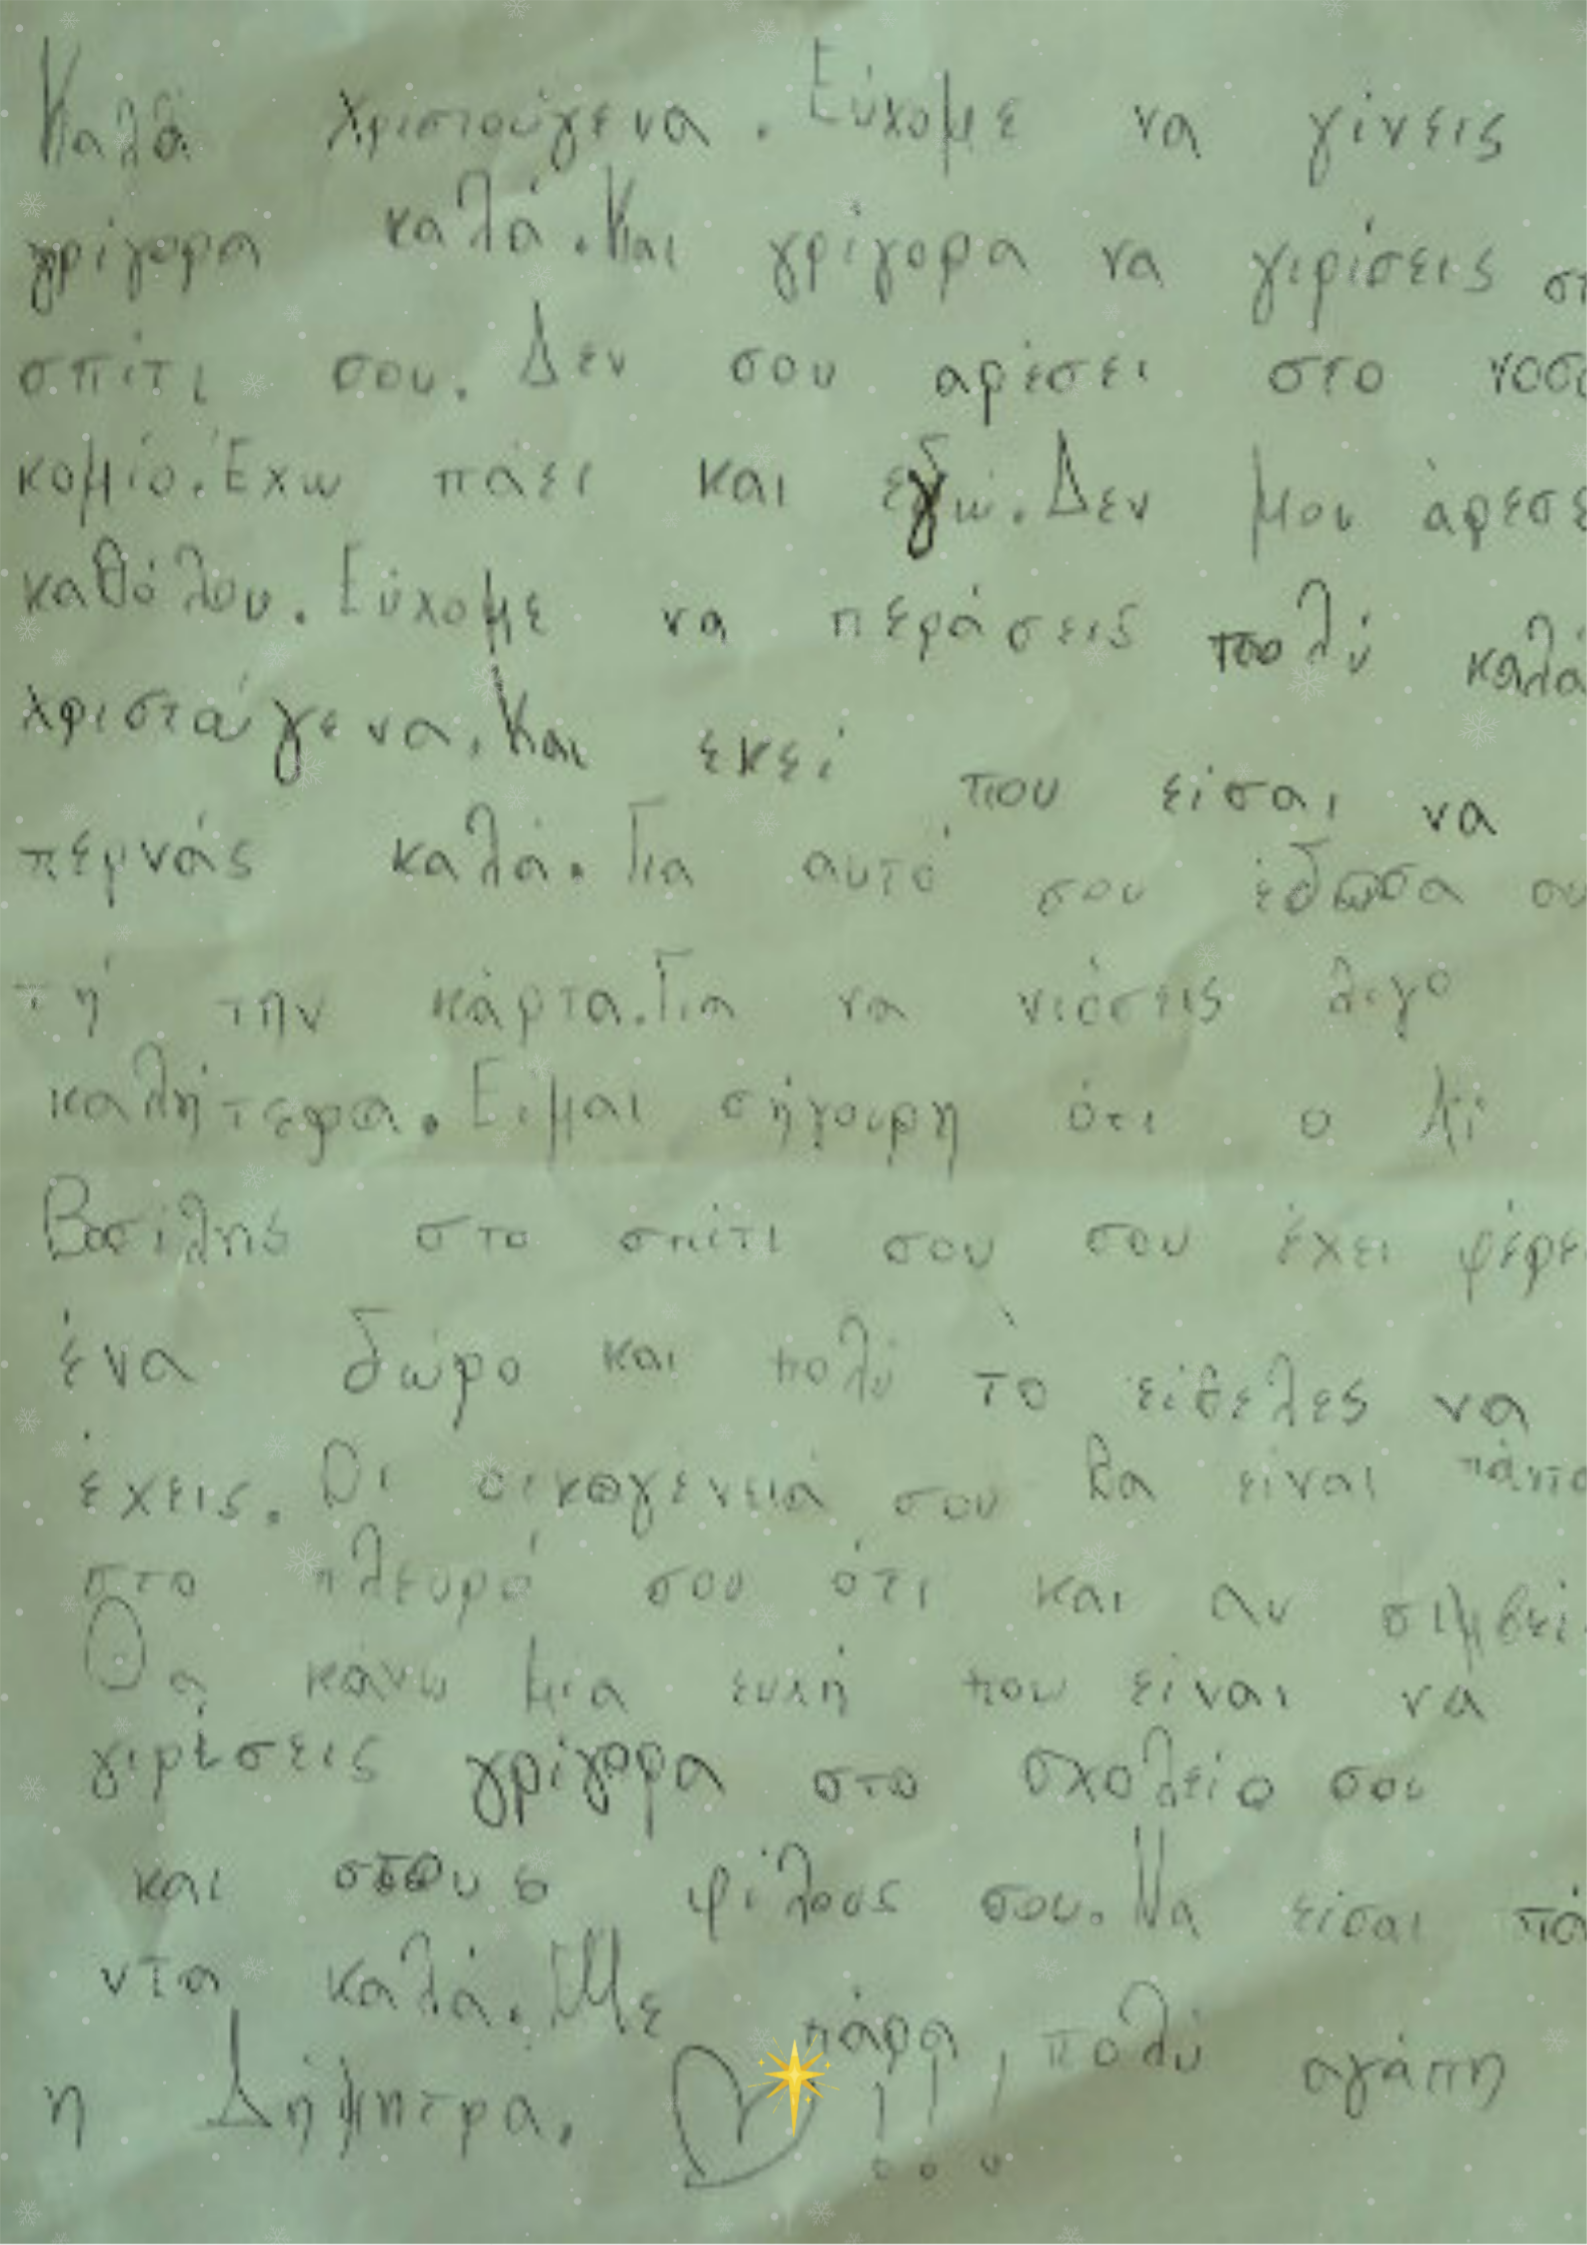 Καλά Χριστούγενα. Εύχομε να γίνεις
γρίγορα καλά. Και γρίγορα να γιρίσεις στ
σπίτι σου. Δεν σου αρέσει στο νοσο
κομίο. Έχω πάει και εγώ. Δεν μου άρεσε
καθόλου. Εύχομε να περάσεις πολύ καλά
χριστούγενα. Και εκεί που είσαι να
περνάς καλά. Για αυτό σου έδωσα αυ
τή την κάρτα. Για να νιόσεις λιγο
καλήτερα. Είμαι σήγουρη ότι ο Άϊ
Βασίλης στο σπίτι σου σου έχει φέρε
ένα δώρο και πολύ το είθελες να
έχεις. Οι οικογένειά σου θα είναι πάντα
στο πλευρό σου ότι και αν σιμβεί.
Θα κάνω μια ευχή που είναι να
γιρίσεις γρίγορα στο σχολείο σου
και στους φίλους σου. Να είσαι πά
ντα καλά. Με πάρα πολύ αγάπη
η Δήμητρα. !!!